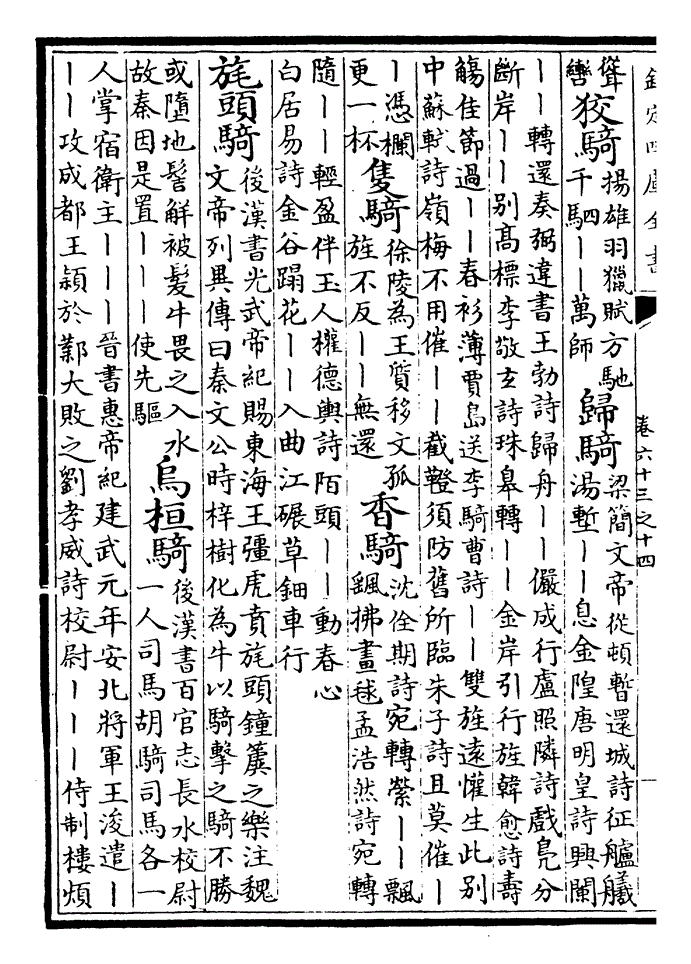 欽定四庫全書
卷六十三之十四
聳
轡
狡騎
揚雄羽獵賦方馳
千駟——萬師
歸騎
梁簡文帝從頓暫還城詩征艫艤
湯塹——息金隍唐明皇詩興闌
——轉還奏弼違書王勃詩歸舟——儼成行盧照隣詩戲鳧分
斷岸——別高標李敬玄詩珠皋轉——金岸引行旌韓愈詩壽
觴佳節過——春衫薄賈島送李騎曹詩——雙旌遠懽生此別
中蘇軾詩嶺梅不用催——截鐙須防舊所臨朱子詩且莫催—
—憑欄
更一杯
隻騎
徐陵為王質移文孤
旌不反——無還
香騎
沈佺期詩宛轉縈——飄
颻拂畫毬孟浩然詩宛轉
隨——輕盈伴玉人權德輿詩陌頭——動春心
白居易詩金谷蹋花——入曲江碾草鈿車行
旄頭騎
後漢書光武帝紀賜東海王彊虎賁旄頭鐘簴之樂注魏
文帝列異傳曰秦文公時梓樹化為牛以騎擊之騎不勝
或墮地髻解被髮牛畏之入水
故秦因是置———使先驅
烏桓騎
後漢書百官志長水校尉
一人司馬胡騎司馬各一
人掌宿衛主———晉書惠帝紀建武元年安北將軍王浚遣—
——攻成都王穎於鄴大敗之劉孝威詩校尉———侍制樓煩